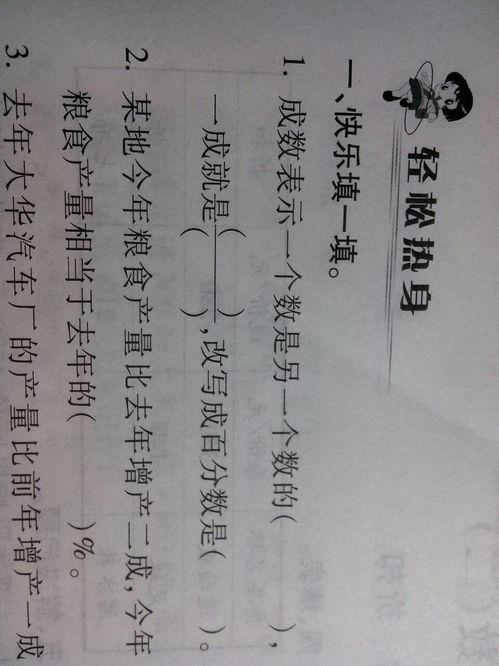 轻松热身
一、快乐填一填。
1. 成数表示一个数是另一个数的( ),
一成就是( )/( ),改写成百分数是( )。
2. 某地今年粮食产量比去年增产二成,今年
粮食产量相当于去年的( )%。
3. 去年大华汽车厂的产量比前年增产一成